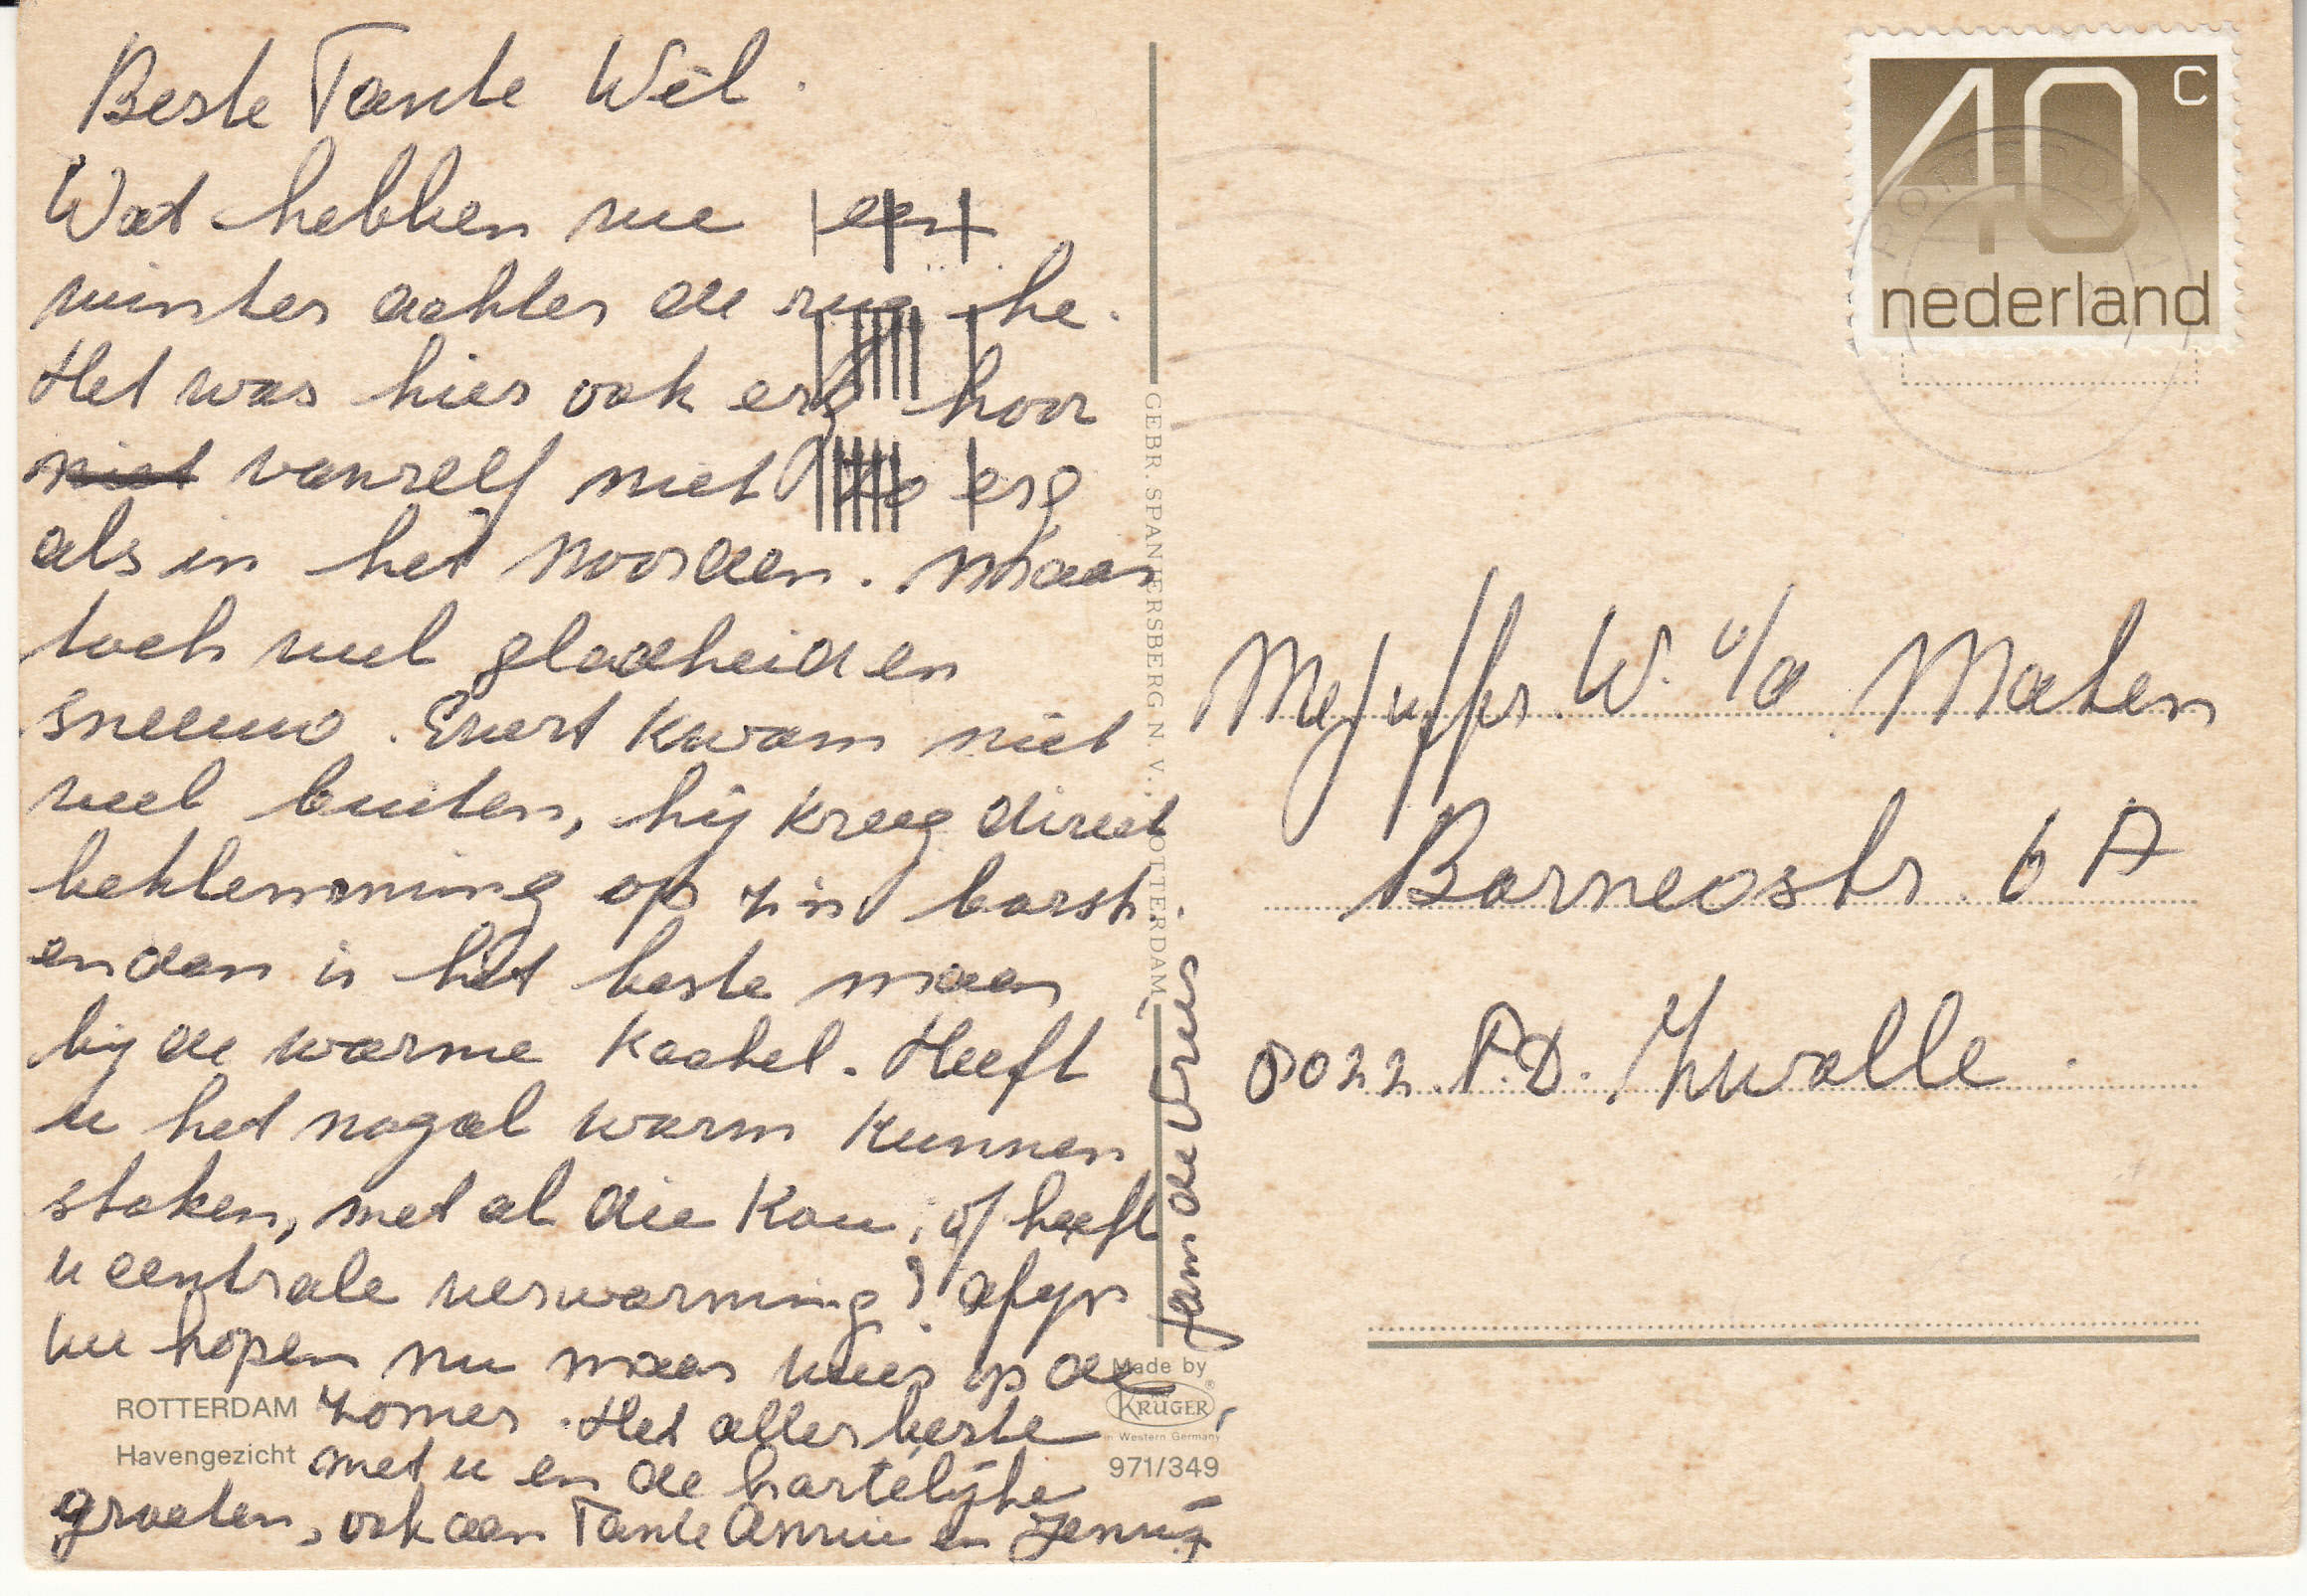 Beste Tante Wil.
Wat hebben we een
winter achter de rug he.
Het was hier ook erg hoor
niet vanzelf niet zo erg
als in het Noorden. Maar
toch veel gladheid en
sneeuw. Evert kwam niet
veel buiten, hij kreeg direct
beklemming op z'in borst.
en dan is het beste maar
bij de warme kachel. Heeft
u het nogal warm kunnen
stoken, met al die kou, of heeft
u centrale verwarming? afijn
we hopen nu maar weer op de
zomer. Het allerbeste
met u en de hartelijke
groeten, ook aan Tante Annie en Jenny
fam de Vries
ROTTERDAM
Havengezicht
GEBR. SPANJERSBERG N.V., ROTTERDAM
Made by
KRÜGER
in Western Germany
971/349
40 c
nederland
ROTTERDAM
Mejuffr. W. v/d Maten
Borneostr. 6 A
8022 P.D. Zwolle.